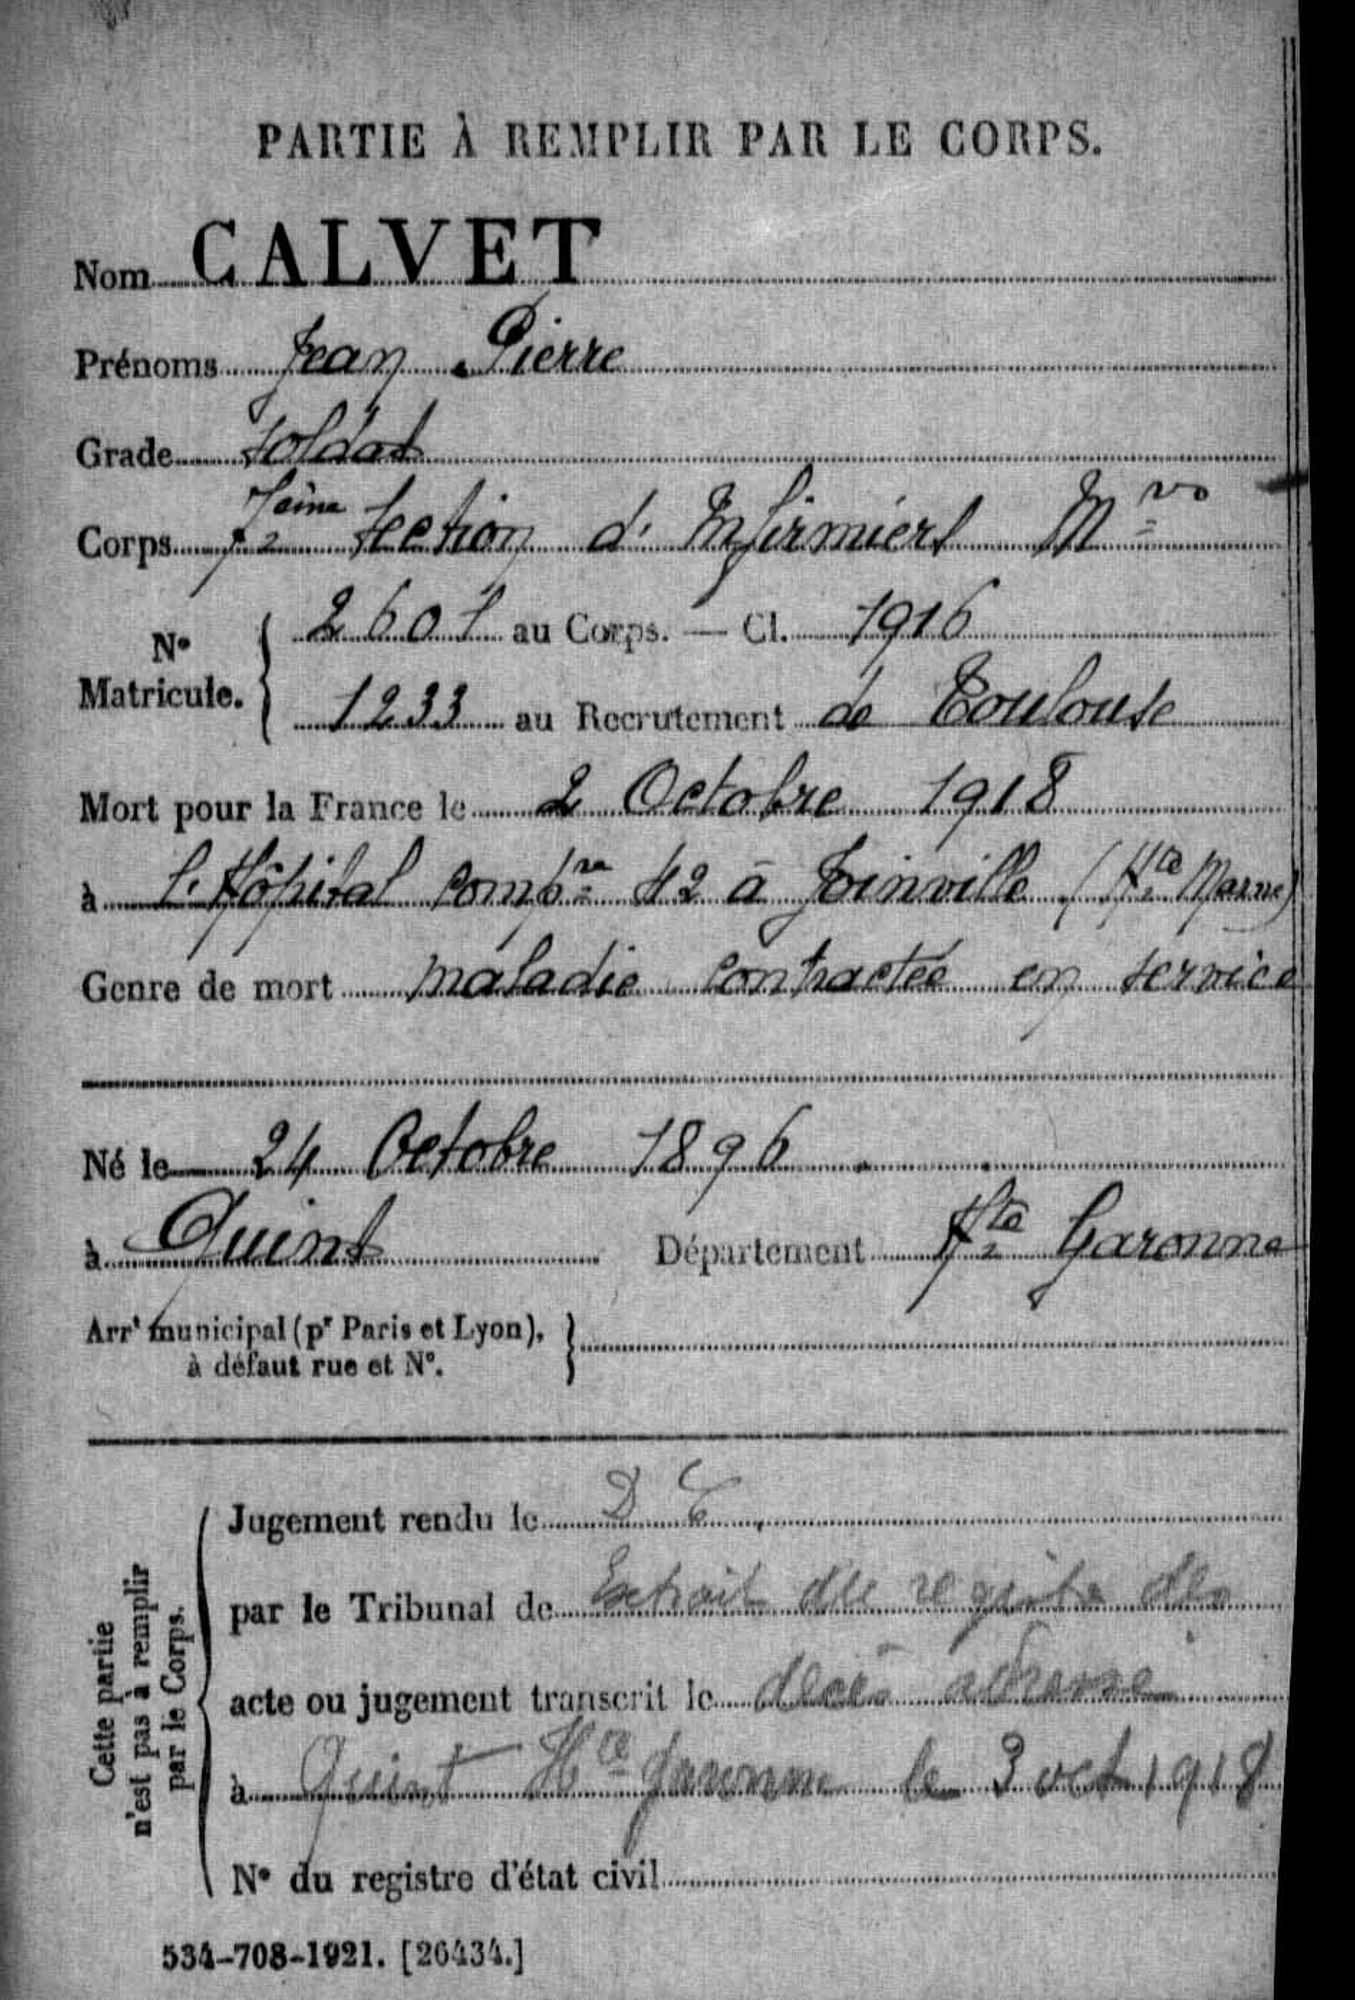 PARTIE À REMPLIR PAR LE CORPS.
Nom CALVET
Prénoms Jean Pierre
Grade Soldat
Corps 7ème Section d'Infirmiers Mres
No Matricule. 2601 au Corps. — Cl. 1916
1233 au Recrutement de Toulouse
Mort pour la France le 2 Octobre 1918
à l'Hôpital Compre 42 à Joinville (Hte Marne)
Genre de mort maladie contractée en service
Né le 24 Octobre 1896
à Quint Département Hte Garonne
Arrt municipal (pr Paris et Lyon),
à défaut rue et No.
Cette partie
n'est pas à remplir
par le Corps.
Jugement rendu le D C.
par le Tribunal de Extrait du registre des
acte ou jugement transcrit le décès adressé
à Quint Hte Garonne le 3 oct 1918
No du registre d'état civil
534-708-1921. [26434.]